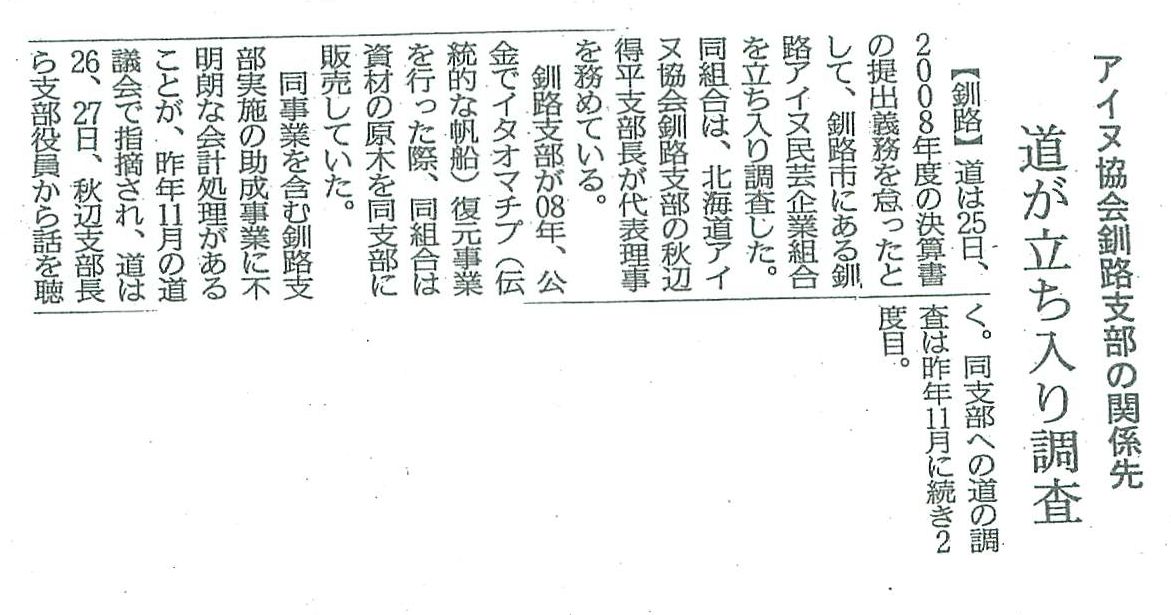 アイヌ協会釧路支部の関係先
道が立ち入り調査
【釧路】道は25日、
2008年度の決算書
の提出義務を怠ったと
して、釧路市にある釧
路アイヌ民芸企業組合
を立ち入り調査した。
同組合は、北海道アイ
ヌ協会釧路支部の秋辺
得平支部長が代表理事
を務めている。
釧路支部が08年、公
金でイタオマチプ（伝
統的な帆船）復元事業
を行った際、同組合は
資材の原木を同支部に
販売していた。
同事業を含む釧路支
部実施の助成事業に不
明朗な会計処理がある
ことが、昨年11月の道
議会で指摘され、道は
26、27日、秋辺支部長
ら支部役員から話を聴
く。同支部への道の調
査は昨年11月に続き2
度目。